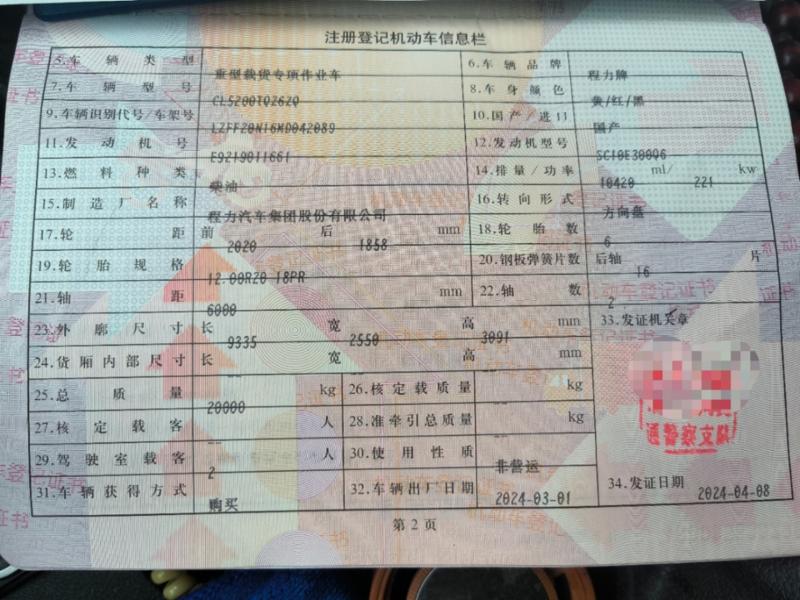 注册登记机动车信息栏
5.车辆类型 重型载货专项作业车 6.车辆品牌 程力牌
7.车辆型号 CL5200TQZ6ZQ 8.车身颜色 黄/红/黑
9.车辆识别代号/车架号 LZFF20N16MD042089 10.国产/进口 国产
11.发动机号 E9219011661 12.发动机型号 SC10E300Q6
13.燃料种类 柴油 14.排量/功率 10420 ml/ 221 kw
15.制造厂名称 程力汽车集团股份有限公司 16.转向形式 方向盘
17.轮距 前 2020 后 1858 mm 18.轮胎数 6
19.轮胎规格 12.00R20 18PR 20.钢板弹簧片数 后轴 16 片
21.轴距 6000 mm 22.轴数 2
23.外廓尺寸 长 9335 宽 2550 高 3091 mm 33.发证机关章
24.货厢内部尺寸 长 -- 宽 -- 高 -- mm
25.总质量 20000 kg 26.核定载质量 -- kg
27.核定载客 -- 人 28.准牵引总质量 -- kg
通警察支队
29.驾驶室载客 2 人 30.使用性质 非营运
31.车辆获得方式 购买 32.车辆出厂日期 2024-03-01 34.发证日期 2024-04-08
第2页